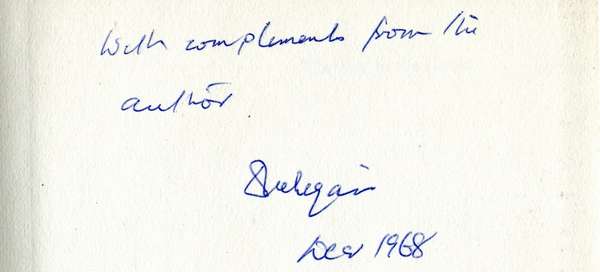 With complements from the
author
Dec 1968